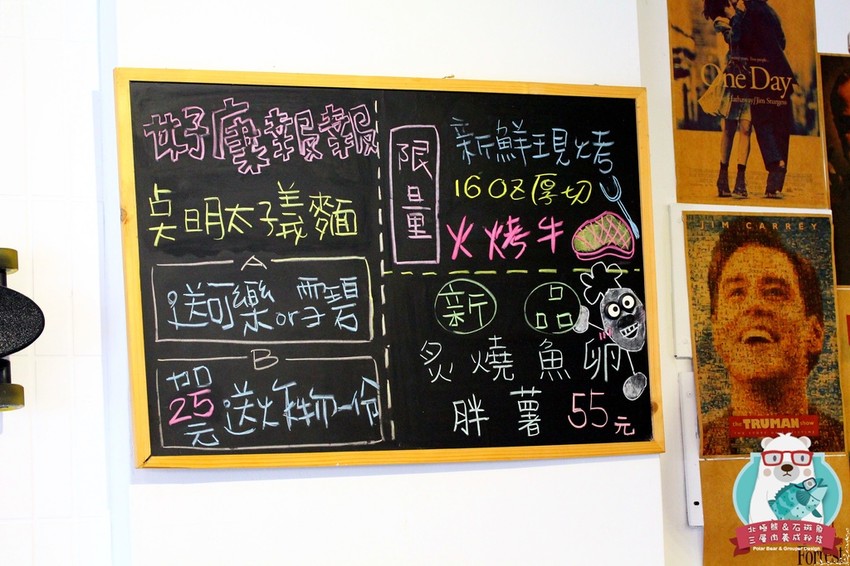 好康報報
點明太子義麵
A
送可樂or雪碧
B
加
25
元
送炸物一份
限量
新鮮現烤
16OZ厚切
火烤牛
新品
炙燒魚卵
胖薯 55元
One Day
JIM CARREY
the TRUMAN show
北極熊&石斑魚
三層肉養成秘笈
Polar Bear & Grouper Design